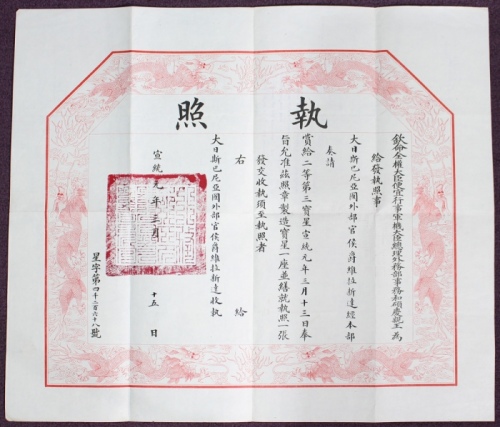 執照
欽命全權大臣便宜行事軍機大臣總理外務部事務和碩慶親王為
給發執照事
大日斯巴尼亞國外部官侯爵維拉折達經本部
奏請
賞給二等第三寶星宣統元年三月十三日奉
旨允准茲照章製造寶星一座並繕就執照一張
發交收執須至執照者
右 給
大日斯巴尼亞國外部官侯爵維拉折達收執
宣統元年三月 十五 日
星字第四千二百六十八號